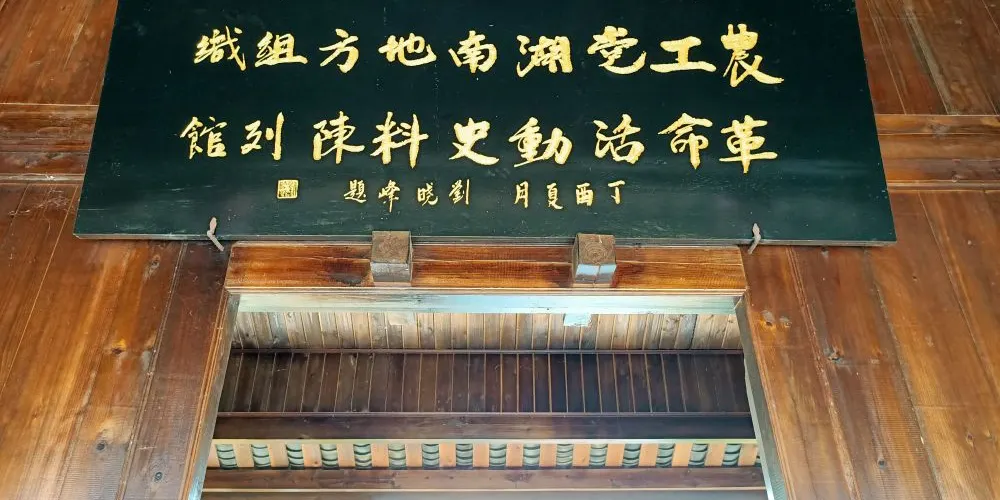 農工党湖南地方組織
革命活動史料陳列館
丁酉夏月 劉晓峰題